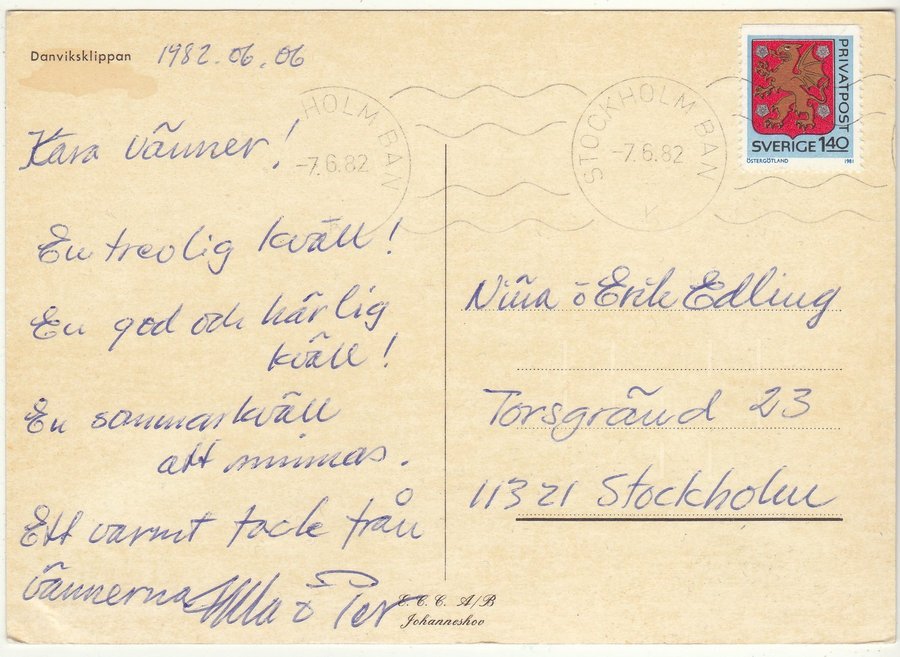 Danviksklippan 1982.06.06
Kära vänner!
En treolig kväll!
En god och härlig
kväll!
En sommarkväll
att minnas.
Ett varmt tack från
vännerna Ulla o Per
E. C. C. A/B
Johanneshov
HOLM BAN
-7.6.82
STOCKHOLM BAN
-7.6.82
PRIVATPOST
SVERIGE 1.40
ÖSTERGÖTLAND 1981
Nina o Erik Edling
Torsgränd 23
11321 Stockholm